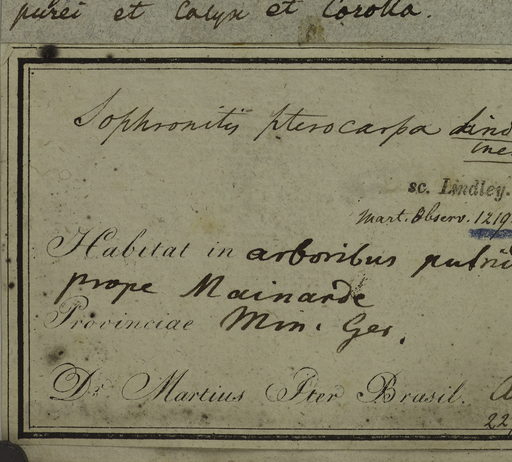 purei et Calyx et Corolla.
Sophronitis pterocarpa Lind
ine
sc. Lindley.
Mart. Observ. 1219
Habitat in arboribus putrid
prope Mainarde
Provinciae Min. Ger.
Dr. Martius Iter Brasil.
22